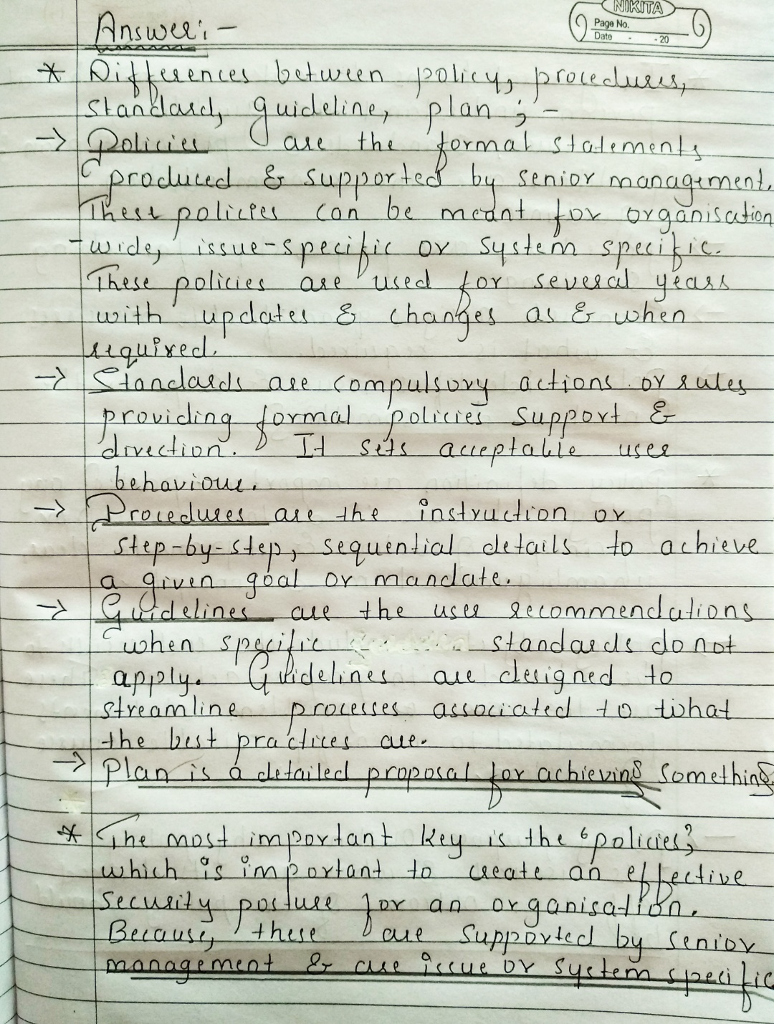 NIKITA
Page No.
Date . - 20
Answer :-
* Differences between policy, procedures,
standard, guideline, plan ; -
→ Policies are the formal statements
produced & supported by senior management.
These policies can be meant for organisation
-wide, issue-specific or system specific.
These policies are used for several years
with updates & changes as & when
required.
→ Standards are compulsory actions or rules
providing formal policies support &
direction. It sets acceptable user
behaviour.
→ Procedures are the instruction or
step-by-step, sequential details to achieve
a given goal or mandate.
→ Guidelines are the user recommendations
when specific standards do not
apply. Guidelines are designed to
streamline processes associated to what
the best practices are.
→ Plan is a detailed proposal for achieving something
* The most important key is the "policies"
which is important to create an effective
security posture for an organisation.
Because, these are supported by senior
management & are issue or system specific